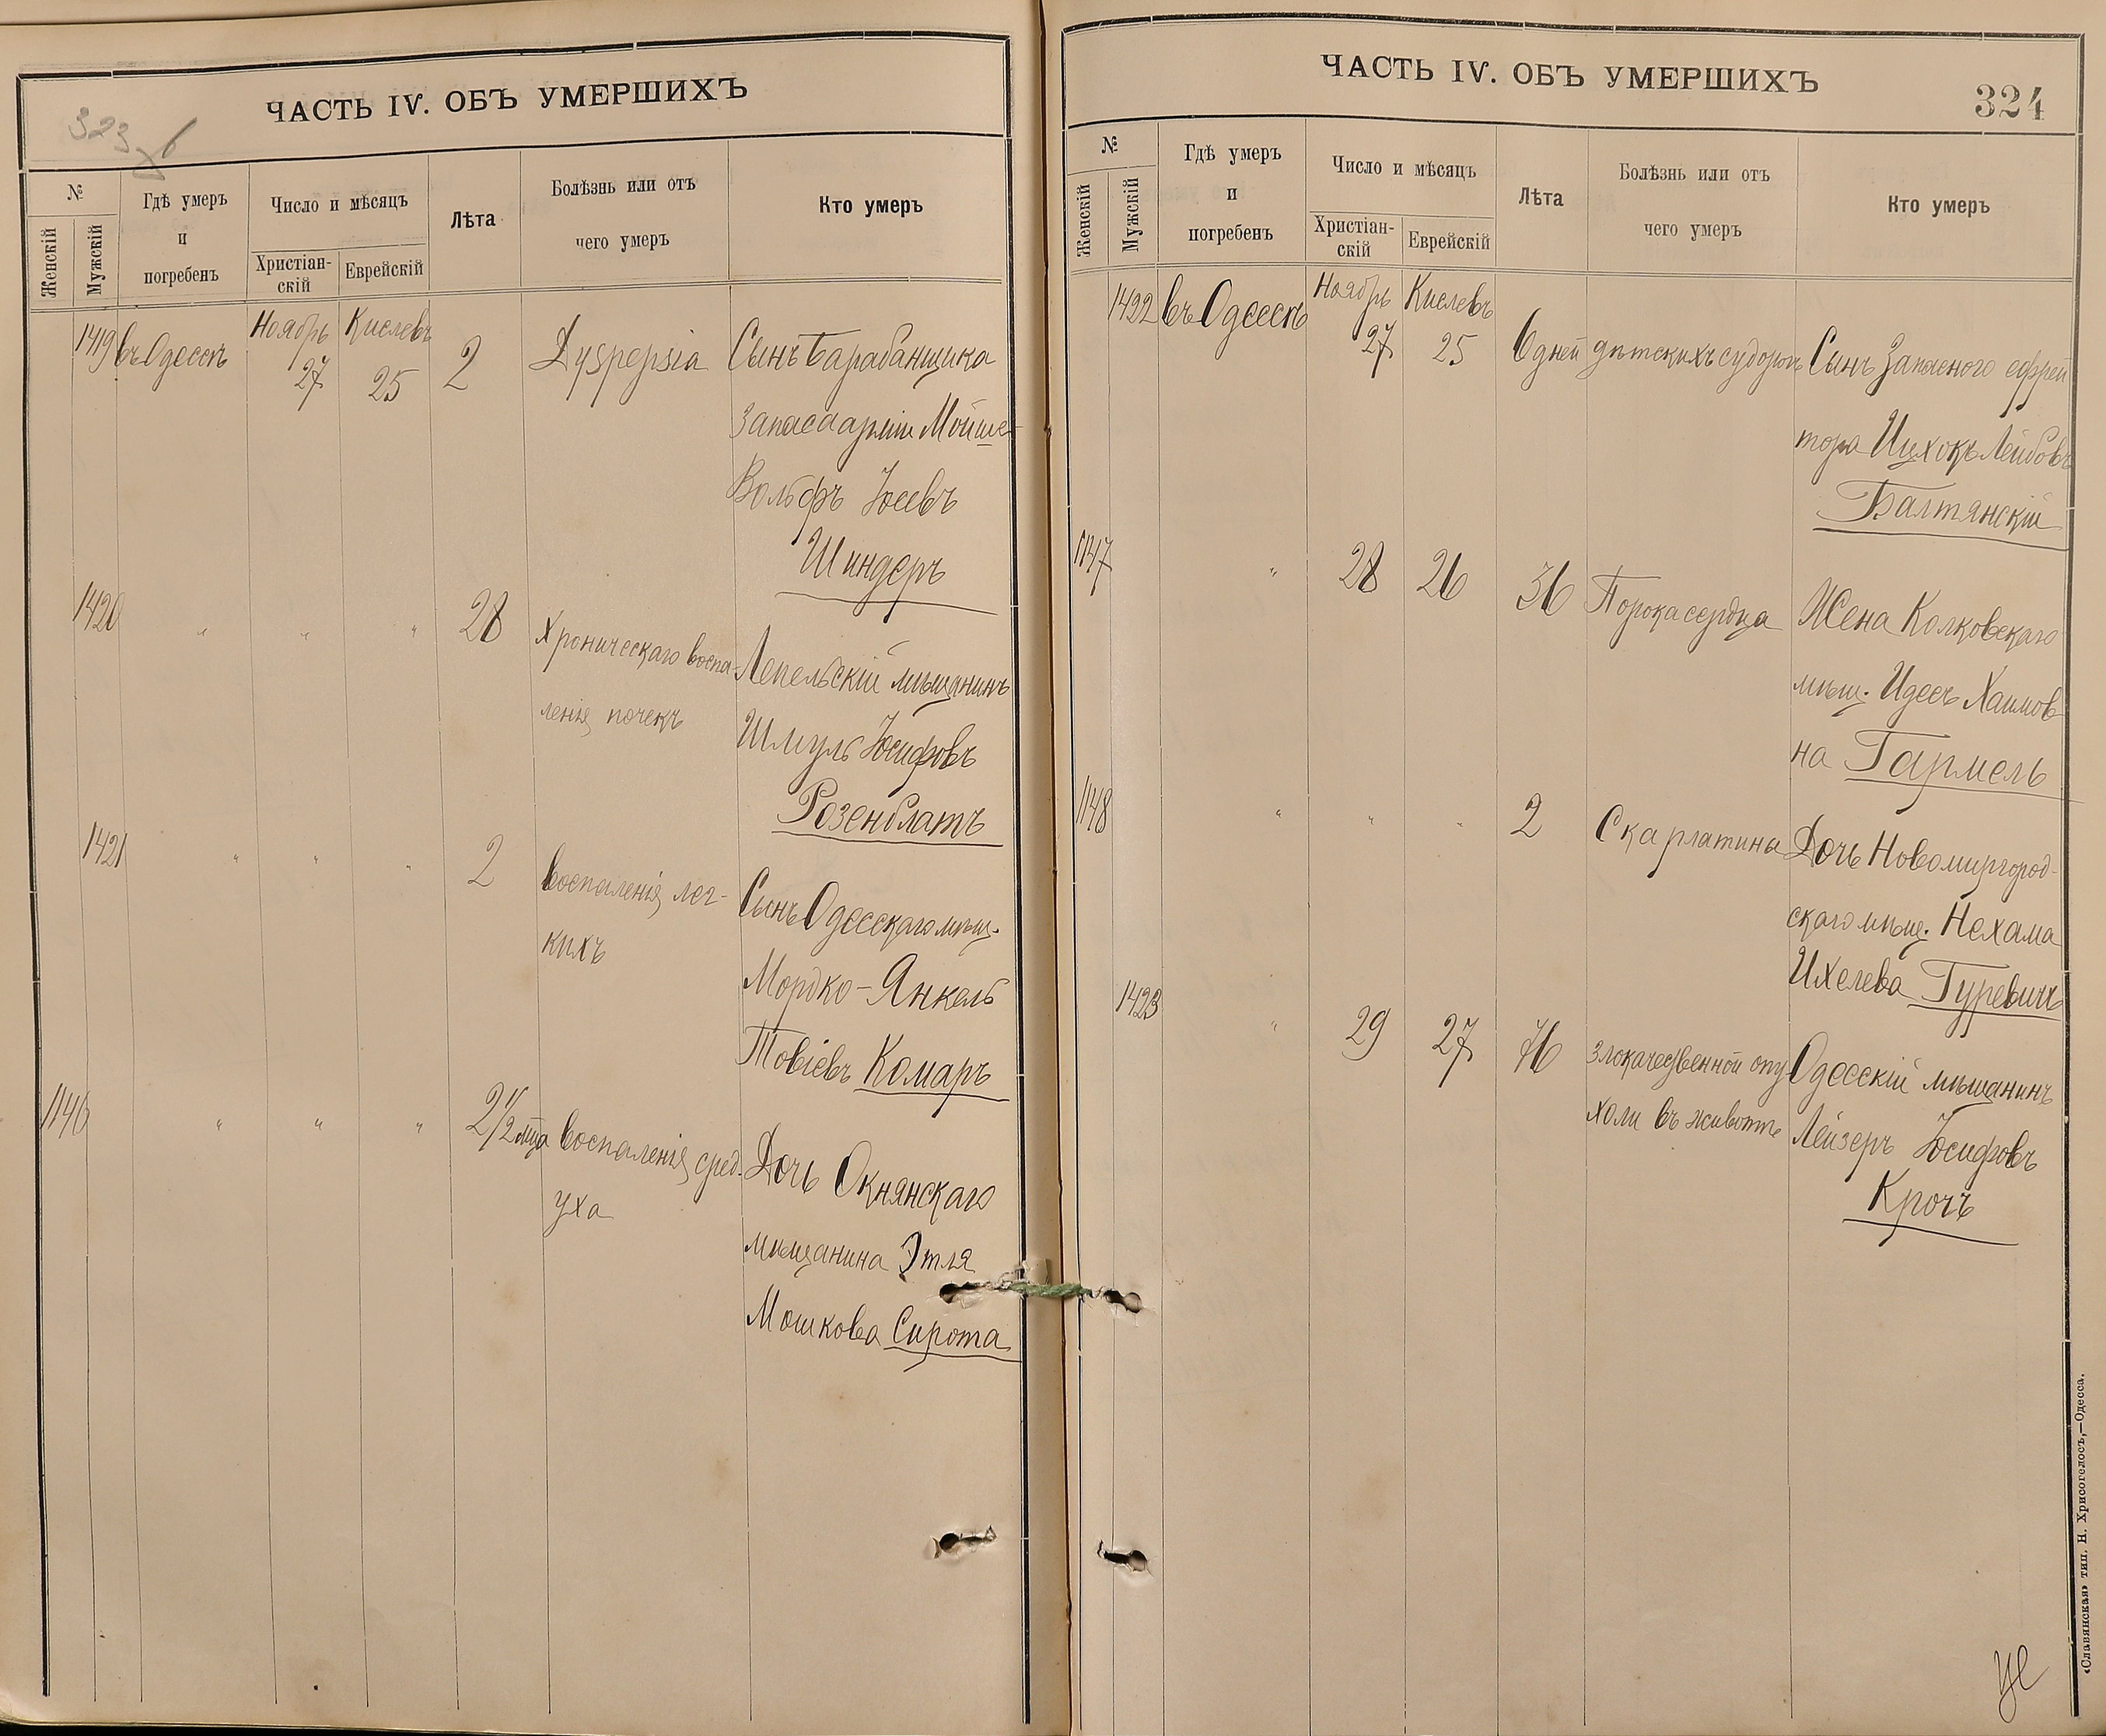 ЧАСТЬ IV. ОБЪ УМЕРШИХЪ
323
№
Женскій
Мужскій
Гдѣ умеръ
и
погребенъ
Число и мѣсяцъ
Христіан-
скій
Еврейскій
Лѣта
Болѣзнь или отъ
чего умеръ
Кто умеръ
1419 въ Одессѣ Ноябрь 27 Кислевъ 25 2 Dyspepsia Сынъ Барабанщика
запаса арміи Мойше-
Вольфъ Іосевъ
Шиндеръ
1420 " " " 28 Хроническаго воспа- Лепельскій мѣщанинъ
ленія почекъ Шмуль Іосифовъ
Розенблатъ
1421 " " " 2 воспаленія лег- Сынъ Одесскаго мѣщ.
кихъ Мордко-Янкель
Товіевъ Комаръ
1146 " " " 2 1/2 мца воспаленія сред. Дочь Окнянскаго
уха мѣщанина Этля
Мошкова Сирота
ЧАСТЬ IV. ОБЪ УМЕРШИХЪ
324
№
Женскій
Мужскій
Гдѣ умеръ
и
погребенъ
Число и мѣсяцъ
Христіан-
скій
Еврейскій
Лѣта
Болѣзнь или отъ
чего умеръ
Кто умеръ
1422 въ Одессѣ Ноябрь 27 Кислевъ 25 6 дней дѣтскихъ судорогъ Сынъ Запасного ефрей
тора Ицхокъ Лейбовъ
Балтянскій
1147 " 28 26 36 Порока сердца Жена Колковскаго
мѣщ. Идесъ Хаимов
на Гармель
1148 " " " 2 Скарлатины Дочь Новомиргород-
скаго мѣщ. Нехама
Ихелева Гуревичъ
1423 " 29 27 76 злокачественной опу Одесскій мѣщанинъ
холи въ животѣ Лейзеръ Іосифовъ
Крочъ
«Славянская» тип. Н. Хрисогелосъ,—Одесса.